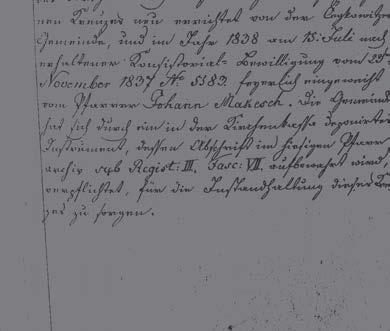 nen Kreuzes neu errichtet von der Leskowitzer
Gemeinde, und im Jahr 1838 am 15. Juli nach
erhaltener Konsistorial-Bewilligung vom 23ten
November 1837 No 5182 feyerlich eingeweiht
vom Pfarrer Johann Makesch. Die Gemeinde
hat sich durch ein in der Kirchenkassa deponirtes
Instrument, dessen Abschrift im hiesigen Pfarr
archiv sub Regist: III. Fasc: VII. aufbewahrt wird
verpflichtet, für die Instandhaltung dieses Kreu
zes zu sorgen.